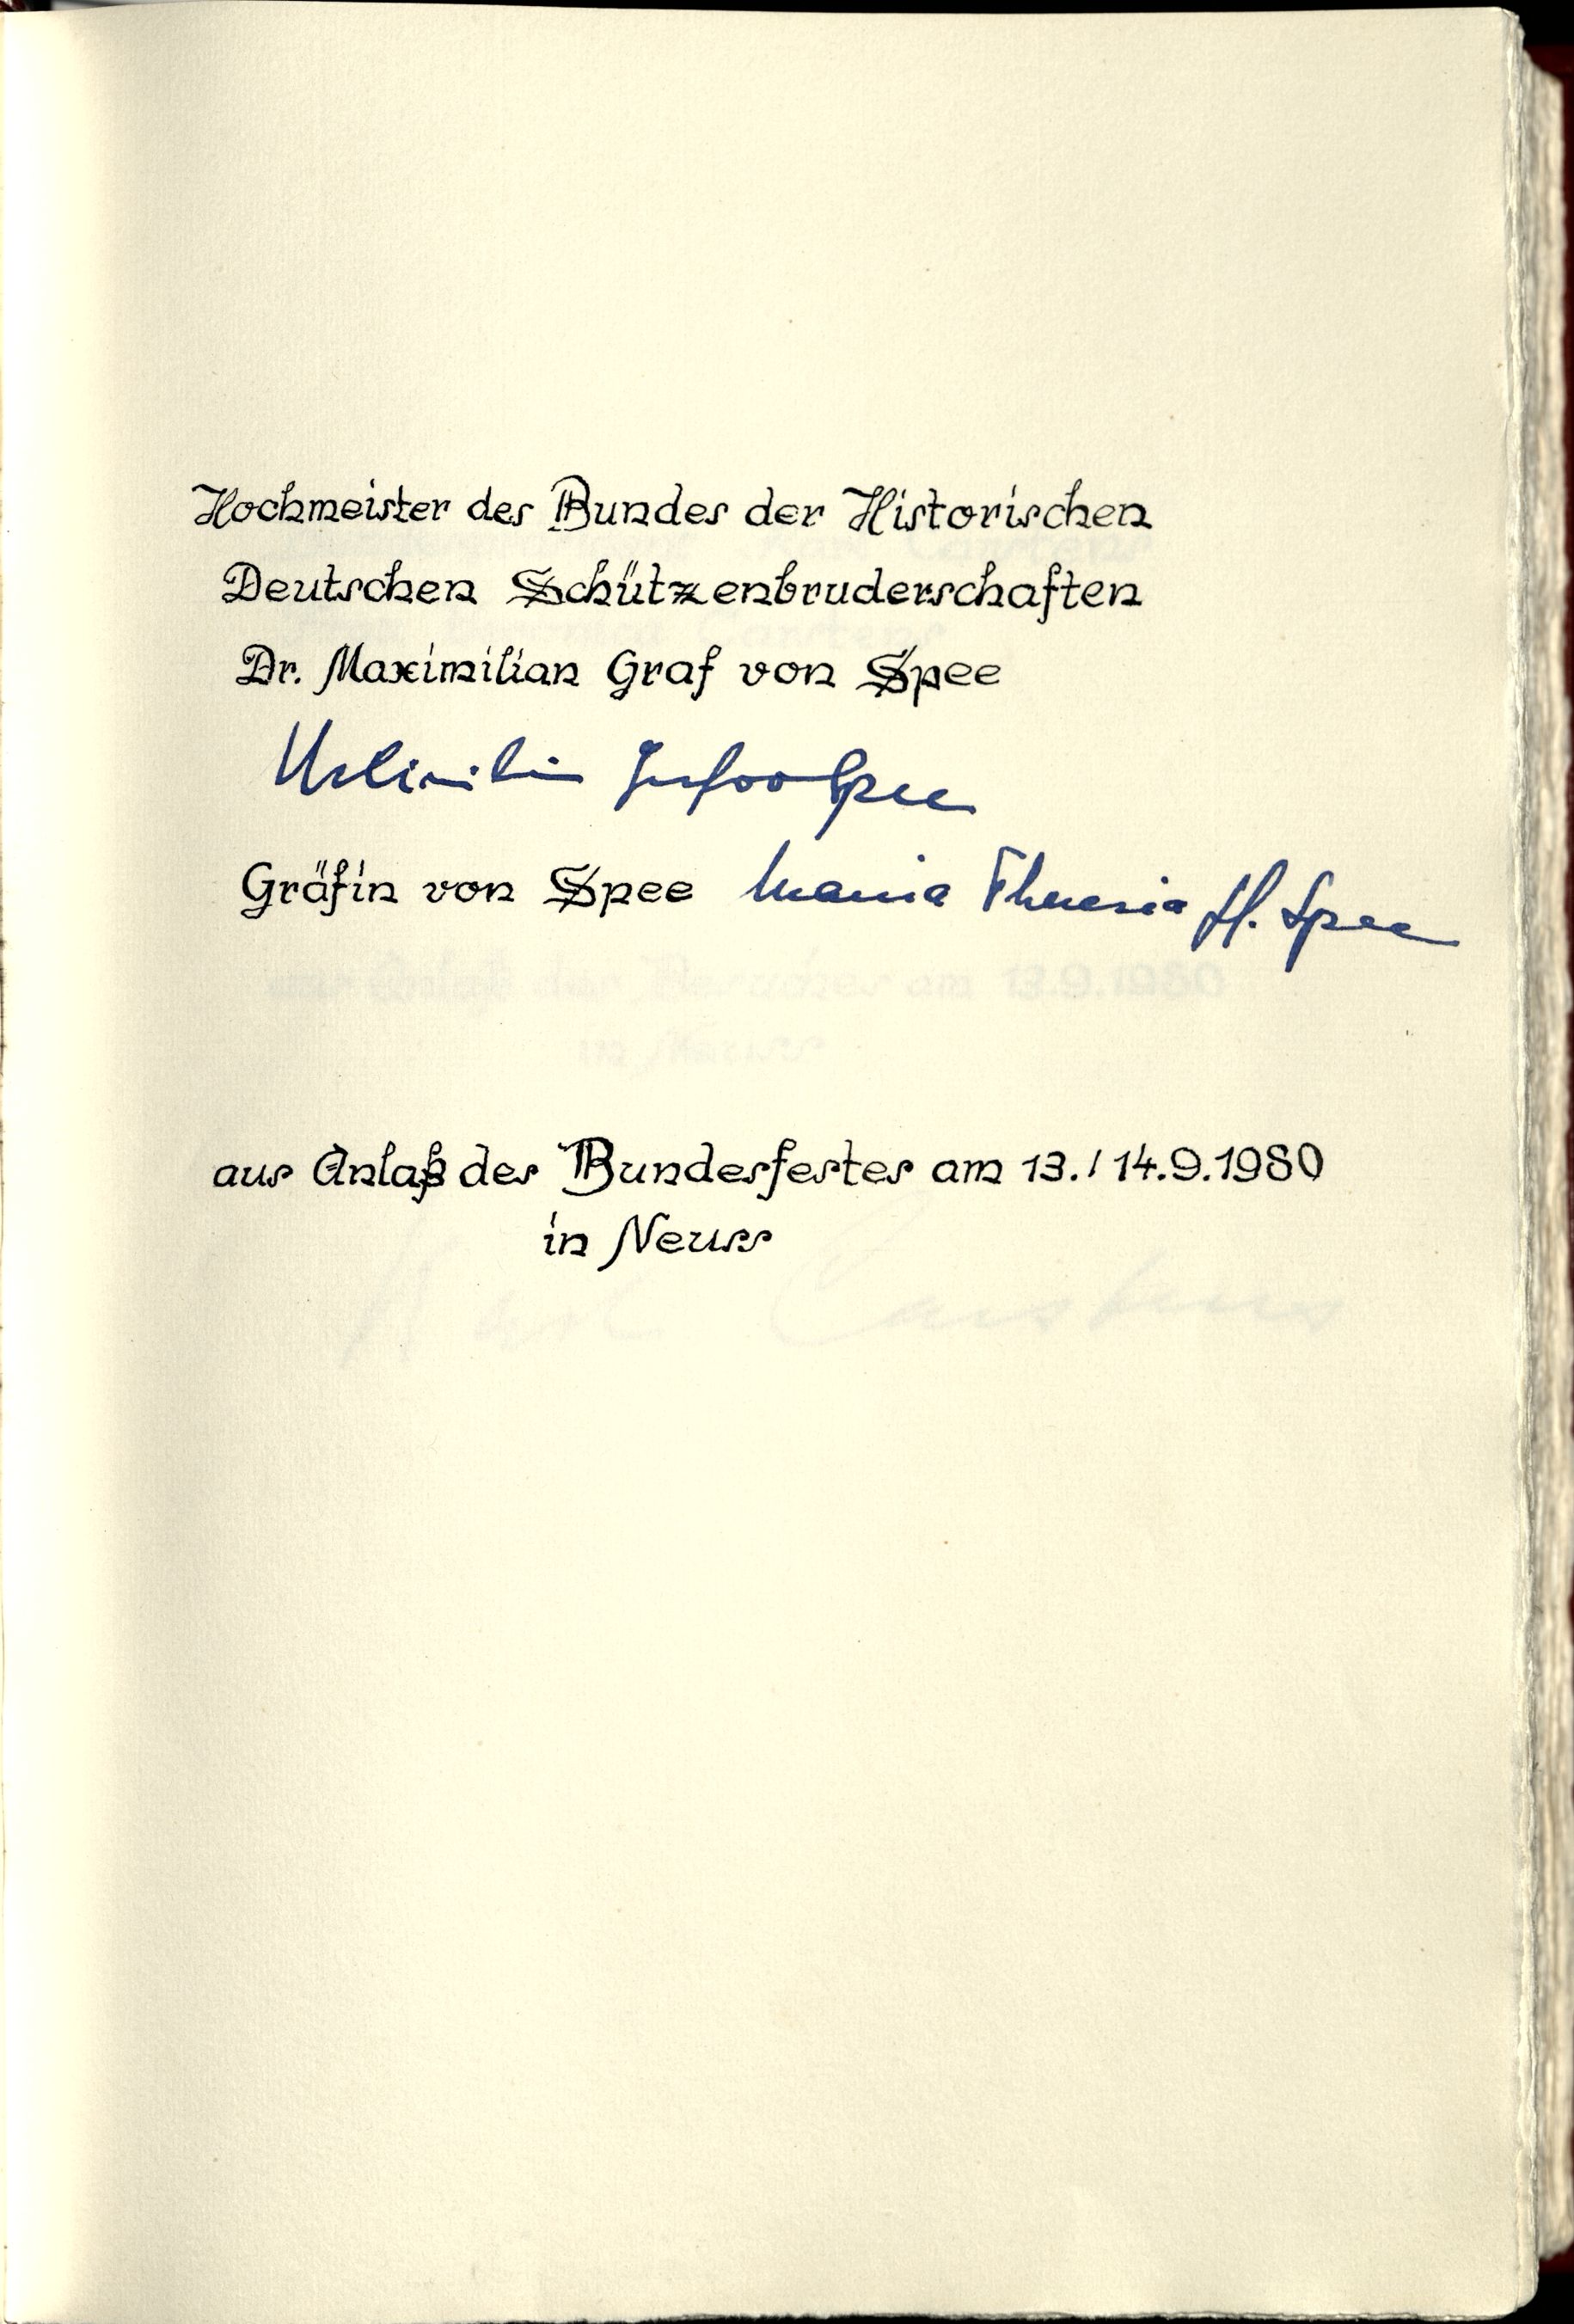 Hochmeister des Bundes der Historischen
Deutschen Schützenbruderschaften
Dr. Maximilian Graf von Spee
Maximilian Graf von Spee
Gräfin von Spee Maria Theresia Gf. Spee
aus Anlaß des Bundesfestes am 13./14.9.1980
in Neuss